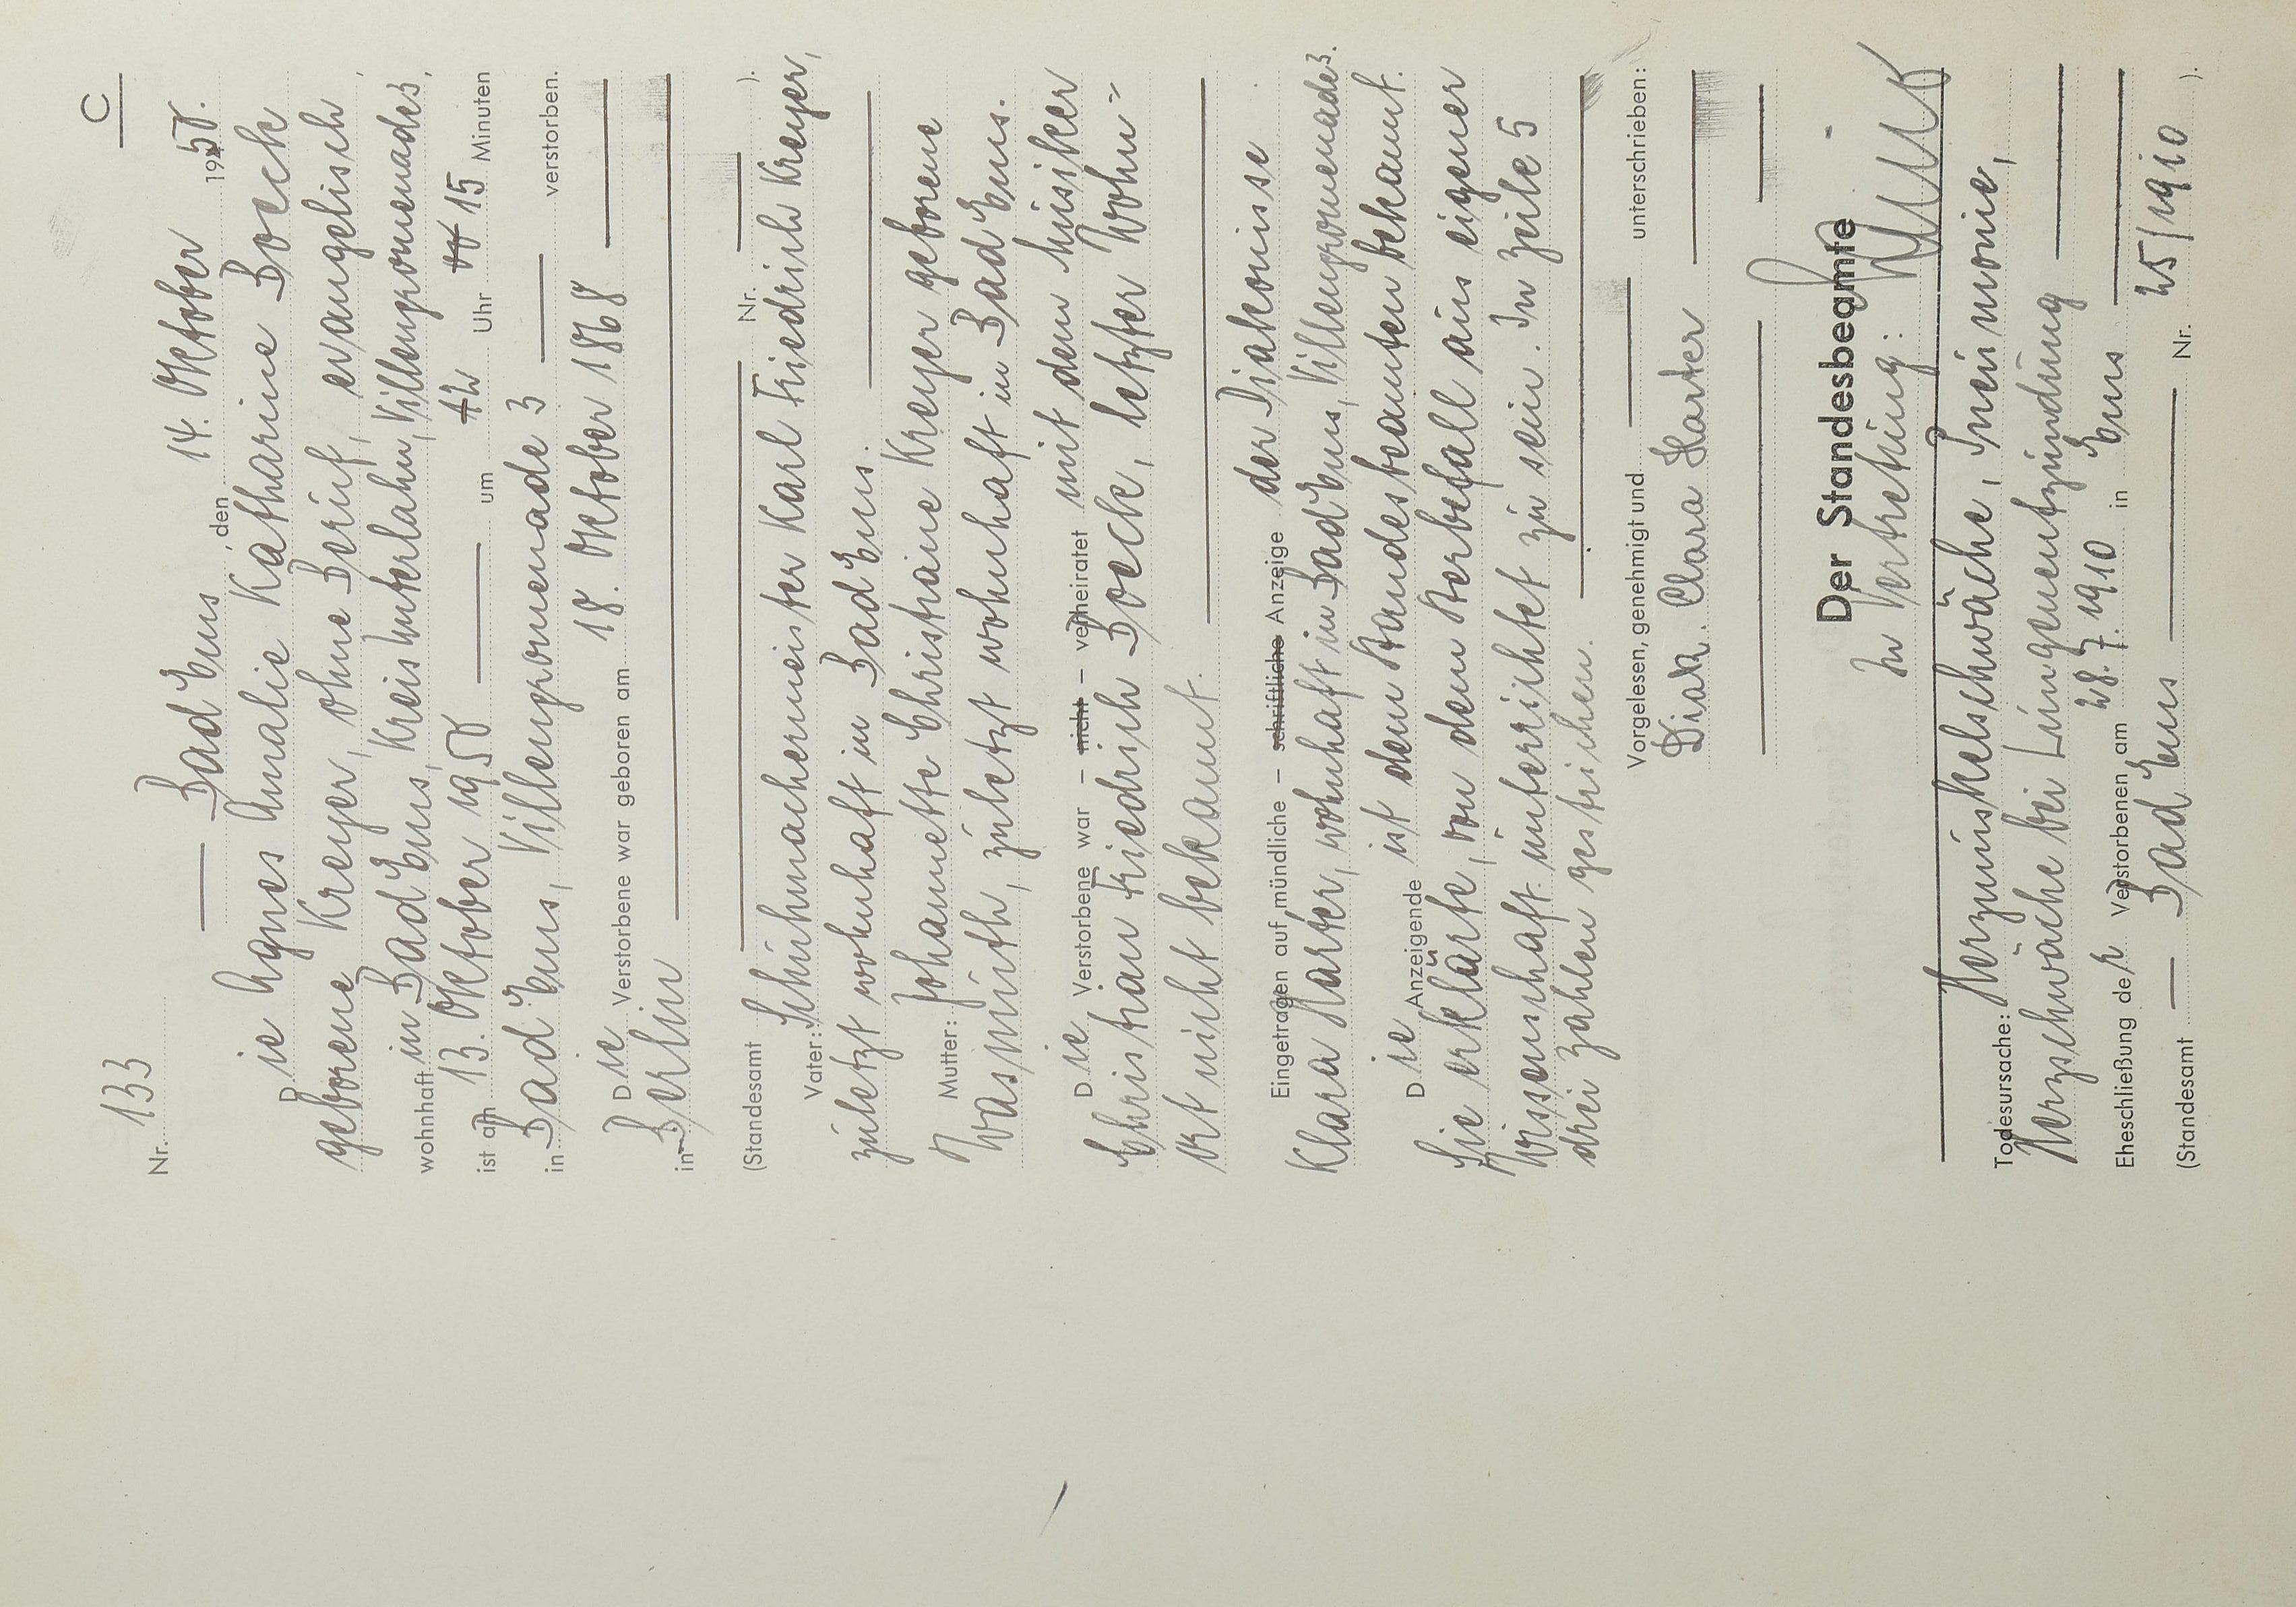 C
Nr. 133
Bad Ems, den 14. Oktober 1950.
Die Agnes Amalie Katharine Bock
geborene Kreyer, ohne Beruf, evangelisch
wohnhaft in Bad Ems, Kreis Unterlahn, Villenpromenade 3,
ist am 13. Oktober 1950 um 12 Uhr 00 15 Minuten
in Bad Ems, Villenpromenade 3 verstorben.
Die Verstorbene war geboren am 18. Oktober 1868
in Berlin
(Standesamt Nr. ).
Vater: Schuhmachermeister Karl Friedrich Kreyer,
zuletzt wohnhaft in Bad Ems.
Mutter: Johannette Christiane Kreyer geborene
Wasmuth, zuletzt wohnhaft in Bad Ems.
Die Verstorbene war – nicht – verheiratet mit dem Musiker
Christian Friedrich Bock, letzter Wohn=
ort nicht bekannt.
Eingetragen auf mündliche – schriftliche Anzeige der Diakonisse
Klara Harter, wohnhaft in Bad Ems, Villenpromenade 3.
Die Anzeigende ist dem Standesbeamten bekannt.
Sie erklärte, von dem Sterbefall aus eigener
Wissenschaft unterrichtet zu sein. In Zeile 5
drei Zahlen gestrichen.
Vorgelesen, genehmigt und unterschrieben:
Diak. Clara Harter
Der Standesbeamte
In Vertretung:
Todesursache: Herzmuskelschwäche, Pneumonie,
Herzschwäche bei Lungenentzündung
Eheschließung der Verstorbenen am 28.7.1910 in Ems
(Standesamt Bad Ems Nr. 25/1910 ).